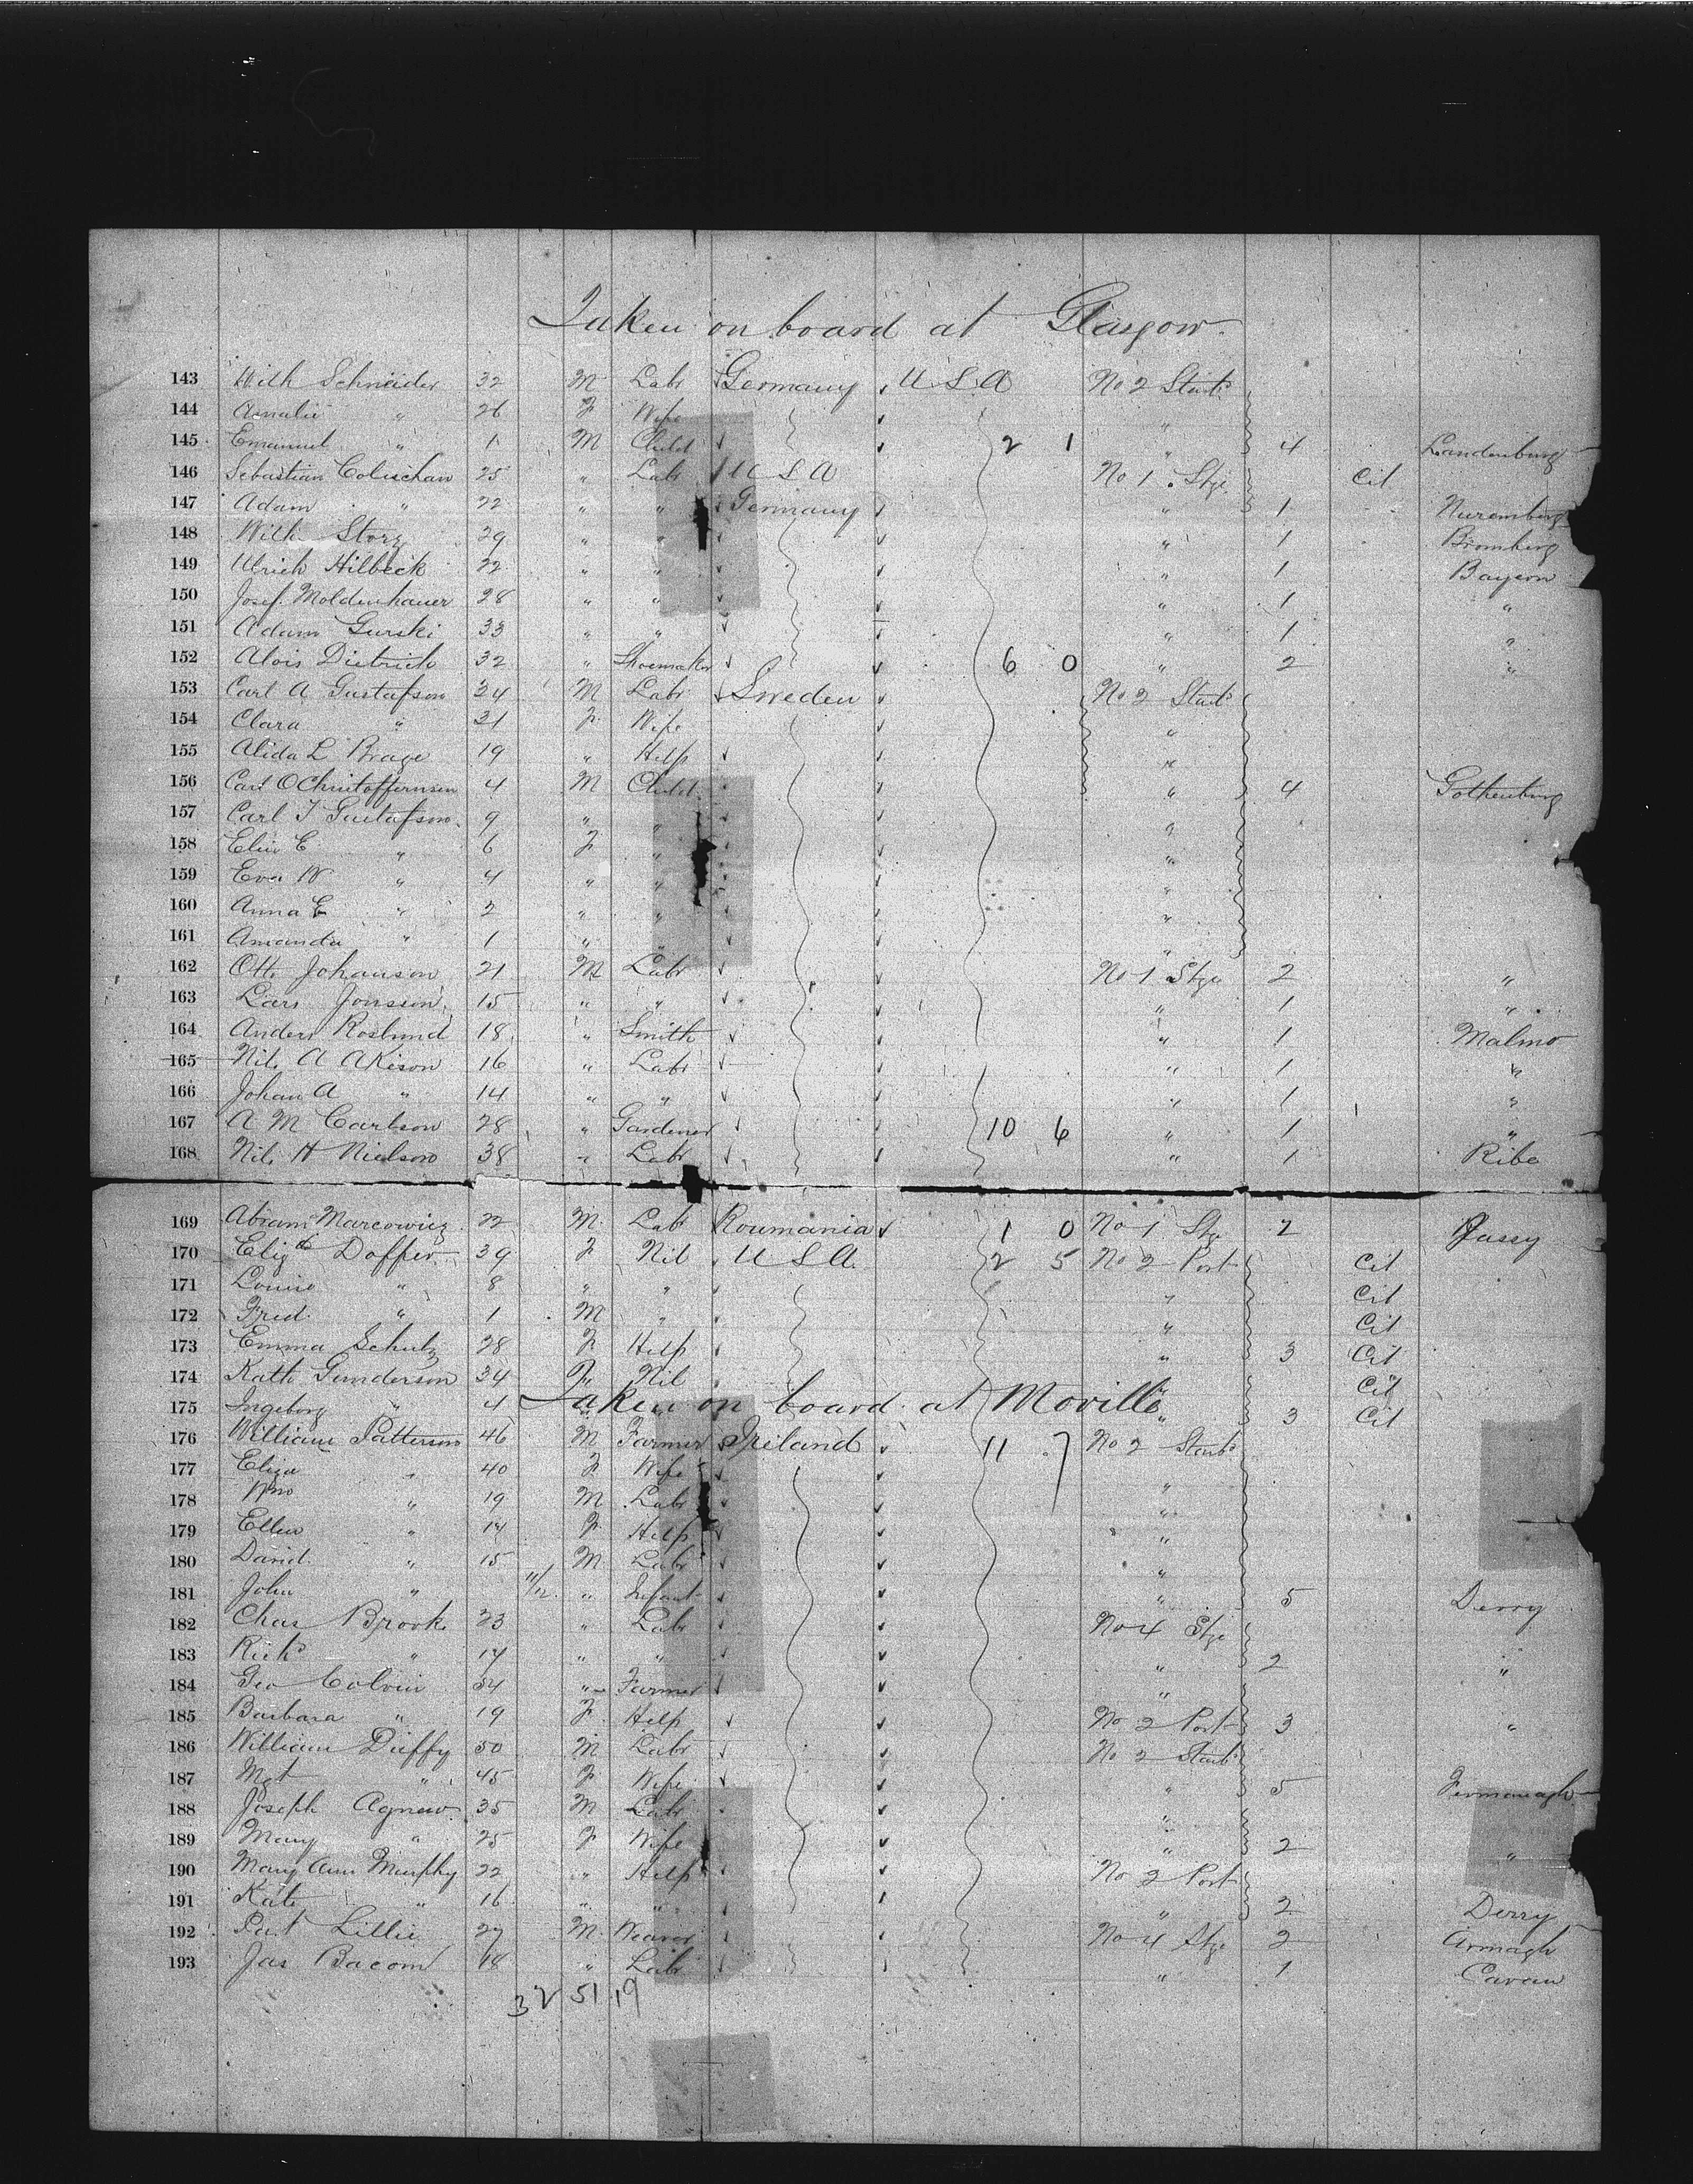 Taken on board at Glasgow.
143 Wilh Schneider 32 M Labr Germany U.S.A No 2 Starb
144 Amalie " 26 F Wife "
145 Emanuel " 1 M Child 2 1 " 4 Landenburg
146 Sebastian 25 " Labr U S A No 1 Stge Cit
147 Adam " 22 " " Germany " 1 Nuremberg
148 Wilh Storz 29 " " " 1 Bromberg
149 Ulrich Hilbeck 22 " " " 1 Bayern
150 Josef Moldenhauer 28 " " " 1 "
151 Adam Gurski 33 " " " 1 "
152 Alois Dietrich 32 " Shoemaker 6 0 " 2 "
153 Carl A Gustafson 34 M Labr Sweden No 2 Starb
154 Clara " 31 F Wife "
155 Alida L Brage 19 " Help "
156 Carl O 4 M Child " 4 Gothenburg
157 Carl J Gustafson 9 " " "
158 Elin E " 6 F " "
159 Eva W " 4 " " "
160 Anna E " 2 " " "
161 Amanda " 1 " " "
162 Otto Johanson 21 M Labr No 1 Stge 2 "
163 Lars Jonsson 15 " " " 1 "
164 Anders Roslund 18 " Smith " 1 Malmo
165 Nils A Akison 16 " Labr " 1 "
166 Johan A " 14 " " " 1 "
167 A M Carlson 28 " Gardener 10 6 " 1 "
168 Nils H Nielson 38 " Labr " 1 Ribe
169 Abram Marcowicz 22 M Labr Roumania 1 0 No 1 Stge 2 Jassy
170 Elizth Doffer 39 F Nil U S A. 2 5 No 2 Port Cit
171 Louise " 8 " " " Cit
172 Fred " 1 M " " Cit
173 Emma Schulz 28 F Help " 3 Cit
174 Kath Gunderson 34 F Nil " Cit
175 Ingeborg " 4 " " " 3 Cit
Taken on board at Moville
176 William Patterson 46 M Farmer Ireland 11 7 No 2 Starb
177 Eliza " 40 F Wife "
178 Wm " 19 M Labr "
179 Ellen " 17 F Help "
180 David " 15 M Labr "
181 John " 11/12 " Infant " 5 Derry
182 Chas Brooks 23 " Labr No 4 Stge
183 Richd " 17 " " " 2 "
184 Geo Colvin 54 " Farmer "
185 Barbara " 19 F Help No 2 Port 3 "
186 William Duffy 50 M Labr No 2 Starb
187 Mgt " 45 F Wife " 5 Fermanagh
188 Joseph Agnew 35 M Labr "
189 Mary " 25 F Wife " 2 "
190 Mary Ann Murphy 22 " Help No 2 Port
191 Kate " 16 " " " 2 Derry
192 Pat Lillie 27 M Weaver No 4 Stge 2 Armagh
193 Jas Bacom 18 " Labr " 1 Cavan
32 51 19